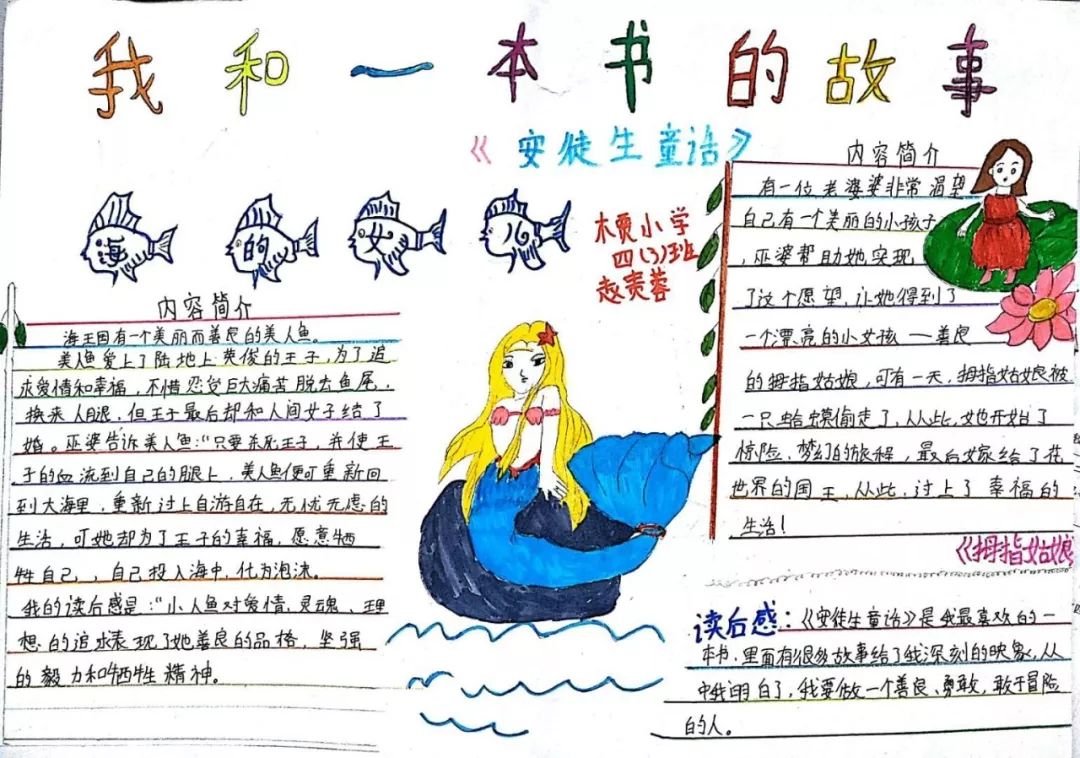 我和一本书的故事
《安徒生童话》
海的女儿
木贾小学
四(3)班
内容简介
海王国有一个美丽而善良的美人鱼。
美人鱼爱上了陆地上英俊的王子,为了追
求爱情和幸福,不惜忍受巨大痛苦脱去鱼尾,
换来人腿,但王子最后却和人间女子结了
婚。巫婆告诉美人鱼:“只要杀死王子,并使王
子的血流到自己的腿上,美人鱼便可重新回
到大海里,重新过上自游自在,无忧无虑的
生活,可她却为了王子的幸福,愿意牺
牲自己,,自己投入海中,化为泡沫。
我的读后感是:“小人鱼对爱情、灵魂、理
想的追求表现了她善良的品格,坚强
的毅力和牺牲精神。
内容简介
有一位老婆婆非常渴望
自己有一个美丽的小孩子
,巫婆帮助她实现
了这个愿望,让她得到了
一个漂亮的小女孩——善良
的拇指姑娘,可有一天,拇指姑娘被
一只蛤蟆偷走了,从此,她开始了
惊险、梦幻的旅程,最后嫁给了花
世界的国王,从此,过上了幸福的
生活!
《拇指姑娘
读后感:《安徒生童话》是我最喜欢的一
本书,里面有很多故事给了我深刻的映象,从
中我明白了,我要做一个善良、勇敢,敢于冒险
的人。